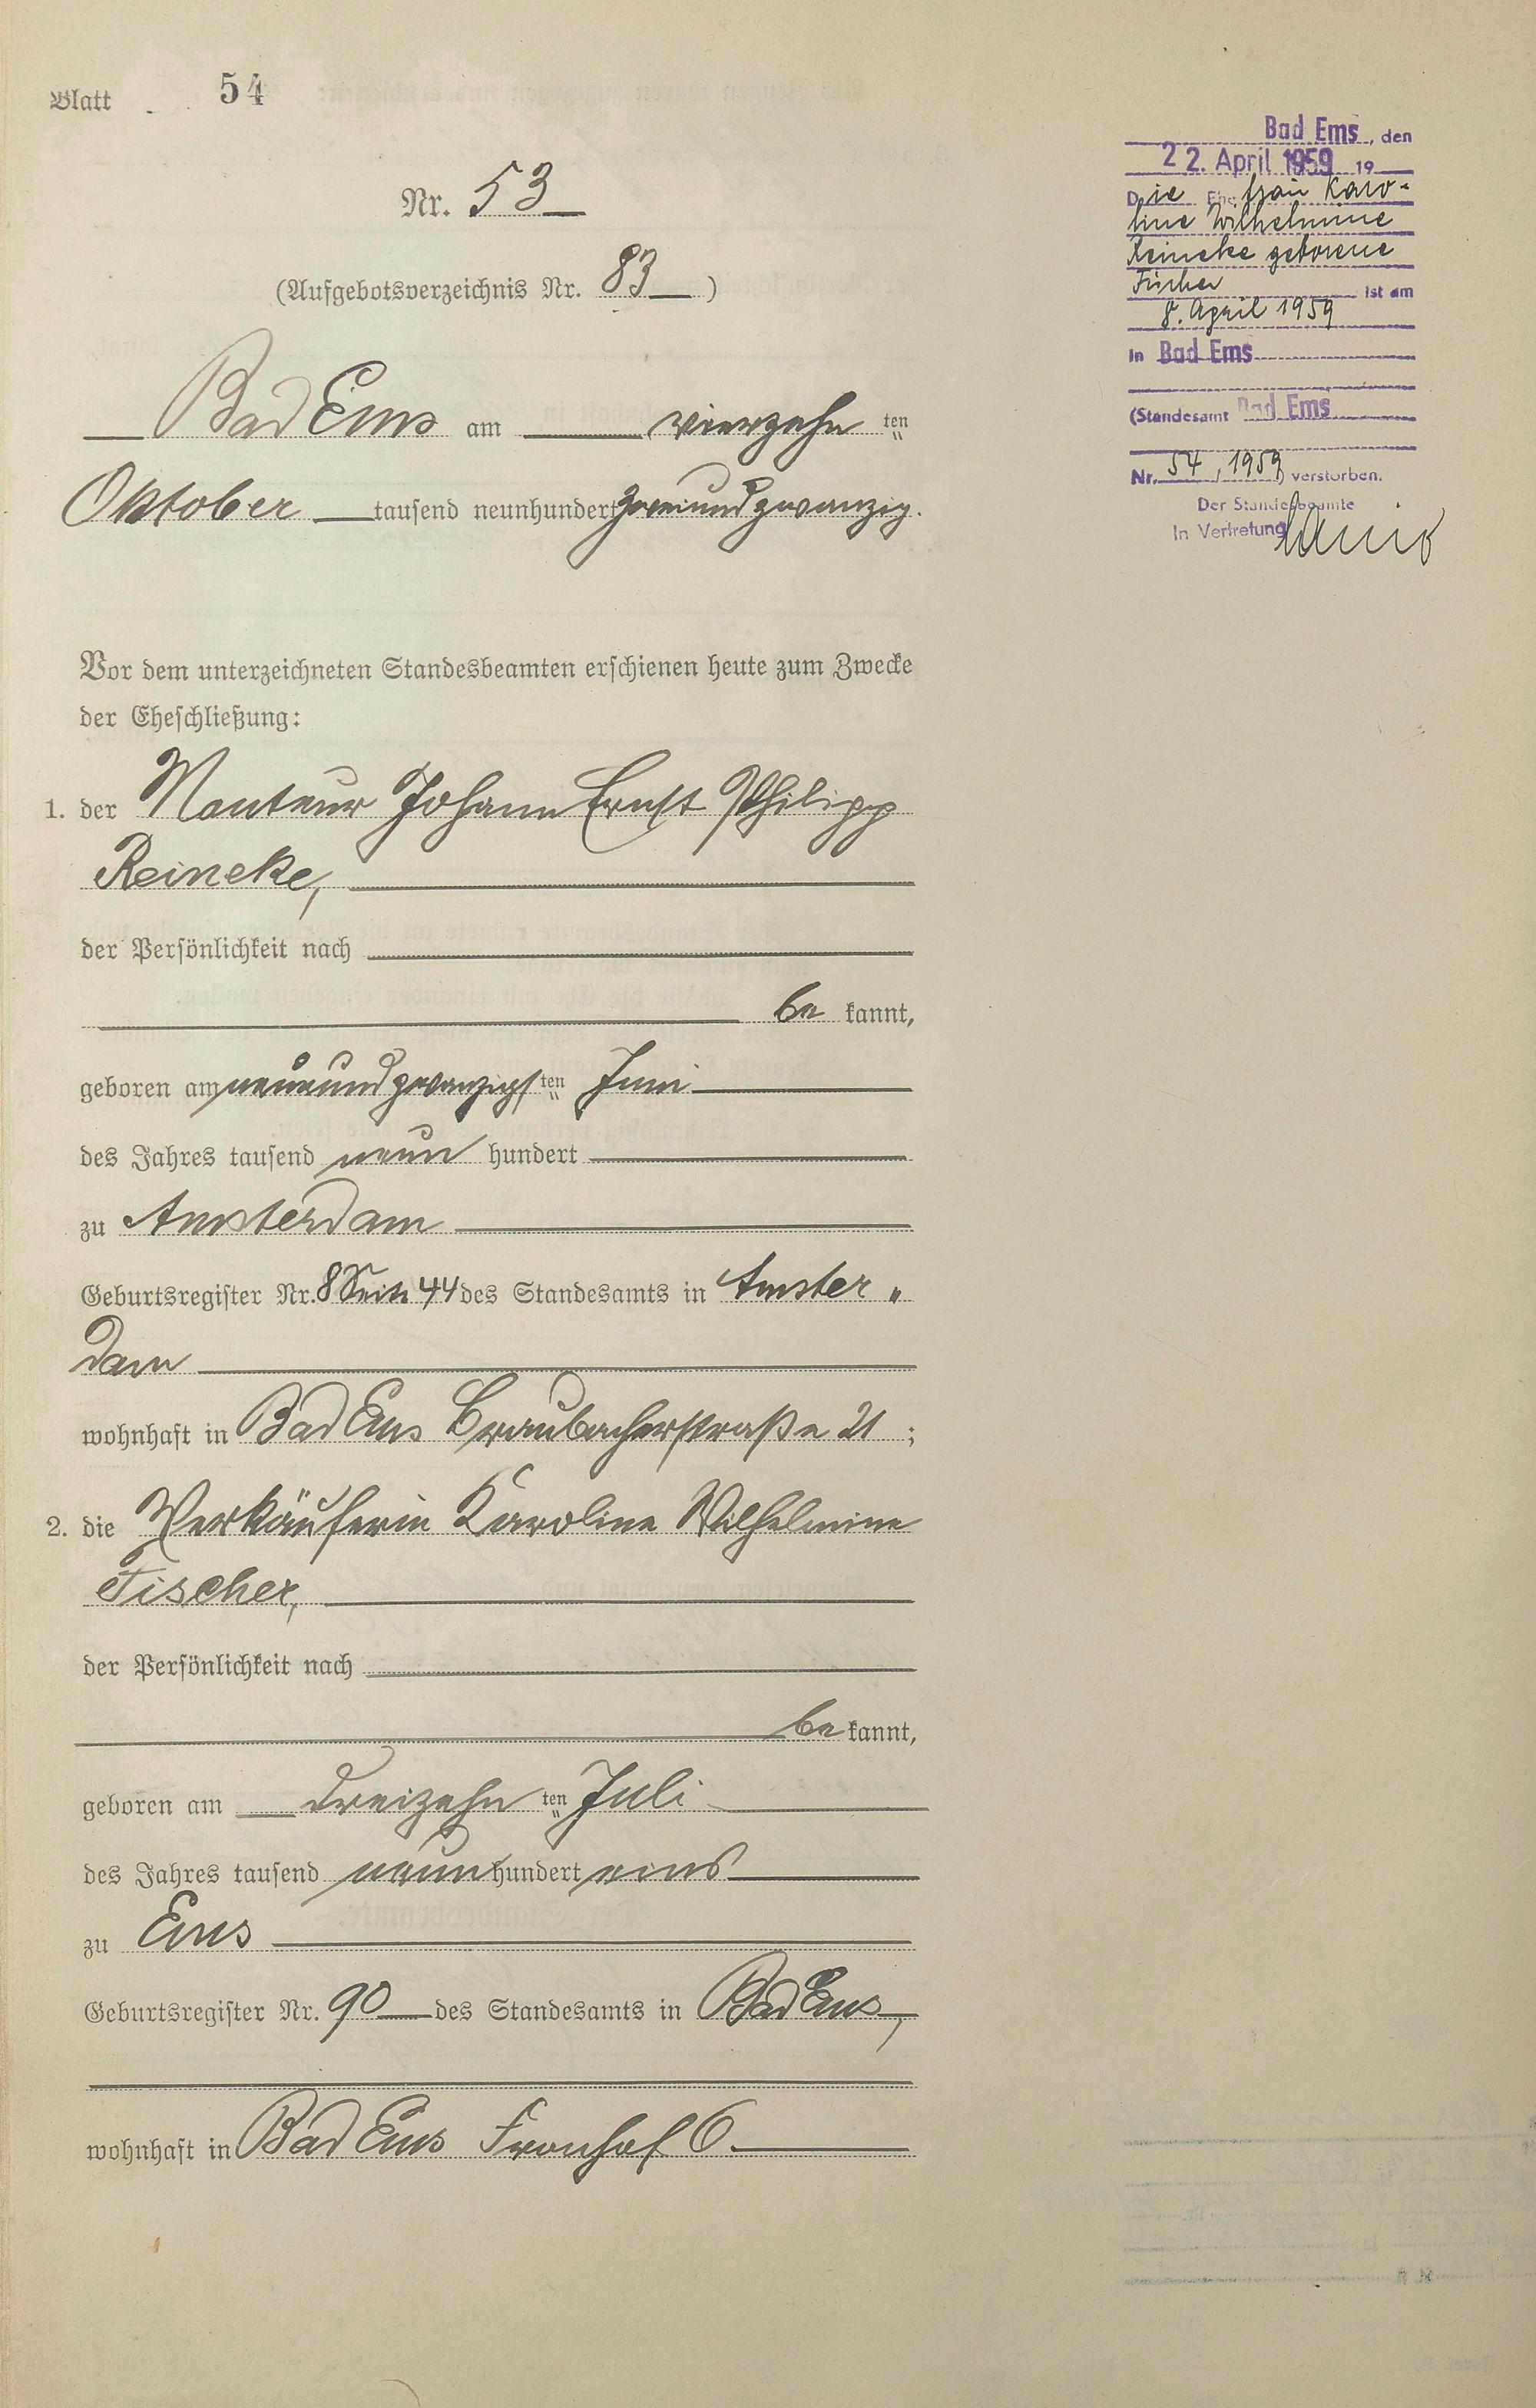 Blatt 54
Nr. 53
(Aufgebotsverzeichnis Nr. 83)
Bad Ems am vierzehn ten
Oktober tausend neunhundert zweiundzwanzig.
Vor dem unterzeichneten Standesbeamten erschienen heute zum Zwecke
der Eheschließung:
1. der Monteur Johann Ernst Philipp
Reineke,
der Persönlichkeit nach
be kannt,
geboren am neunundzwanzigsten Juni
des Jahres tausend neun hundert
zu Amsterdam
Geburtsregister Nr. 8 Seite 44 des Standesamts in Amster"
dam
wohnhaft in Bad Ems Braubacherstraße 21;
2. die Verkäuferin Karoline Wilhelmine
Fischer,
der Persönlichkeit nach
be kannt,
geboren am dreizehn ten Juli
des Jahres tausend neun hundert eins
zu Ems
Geburtsregister Nr. 90 des Standesamts in Bad Ems,
wohnhaft in Bad Ems Fronhof 6.
Bad Ems, den
22. April 1959 19
Die Ehefrau Karo-
line Wilhelmine
Reineke geborene
Fischer ist am
8. April 1959
in Bad Ems
(Standesamt Bad Ems
Nr. 54/1959) verstorben.
Der Standesbeamte
In Vertretung